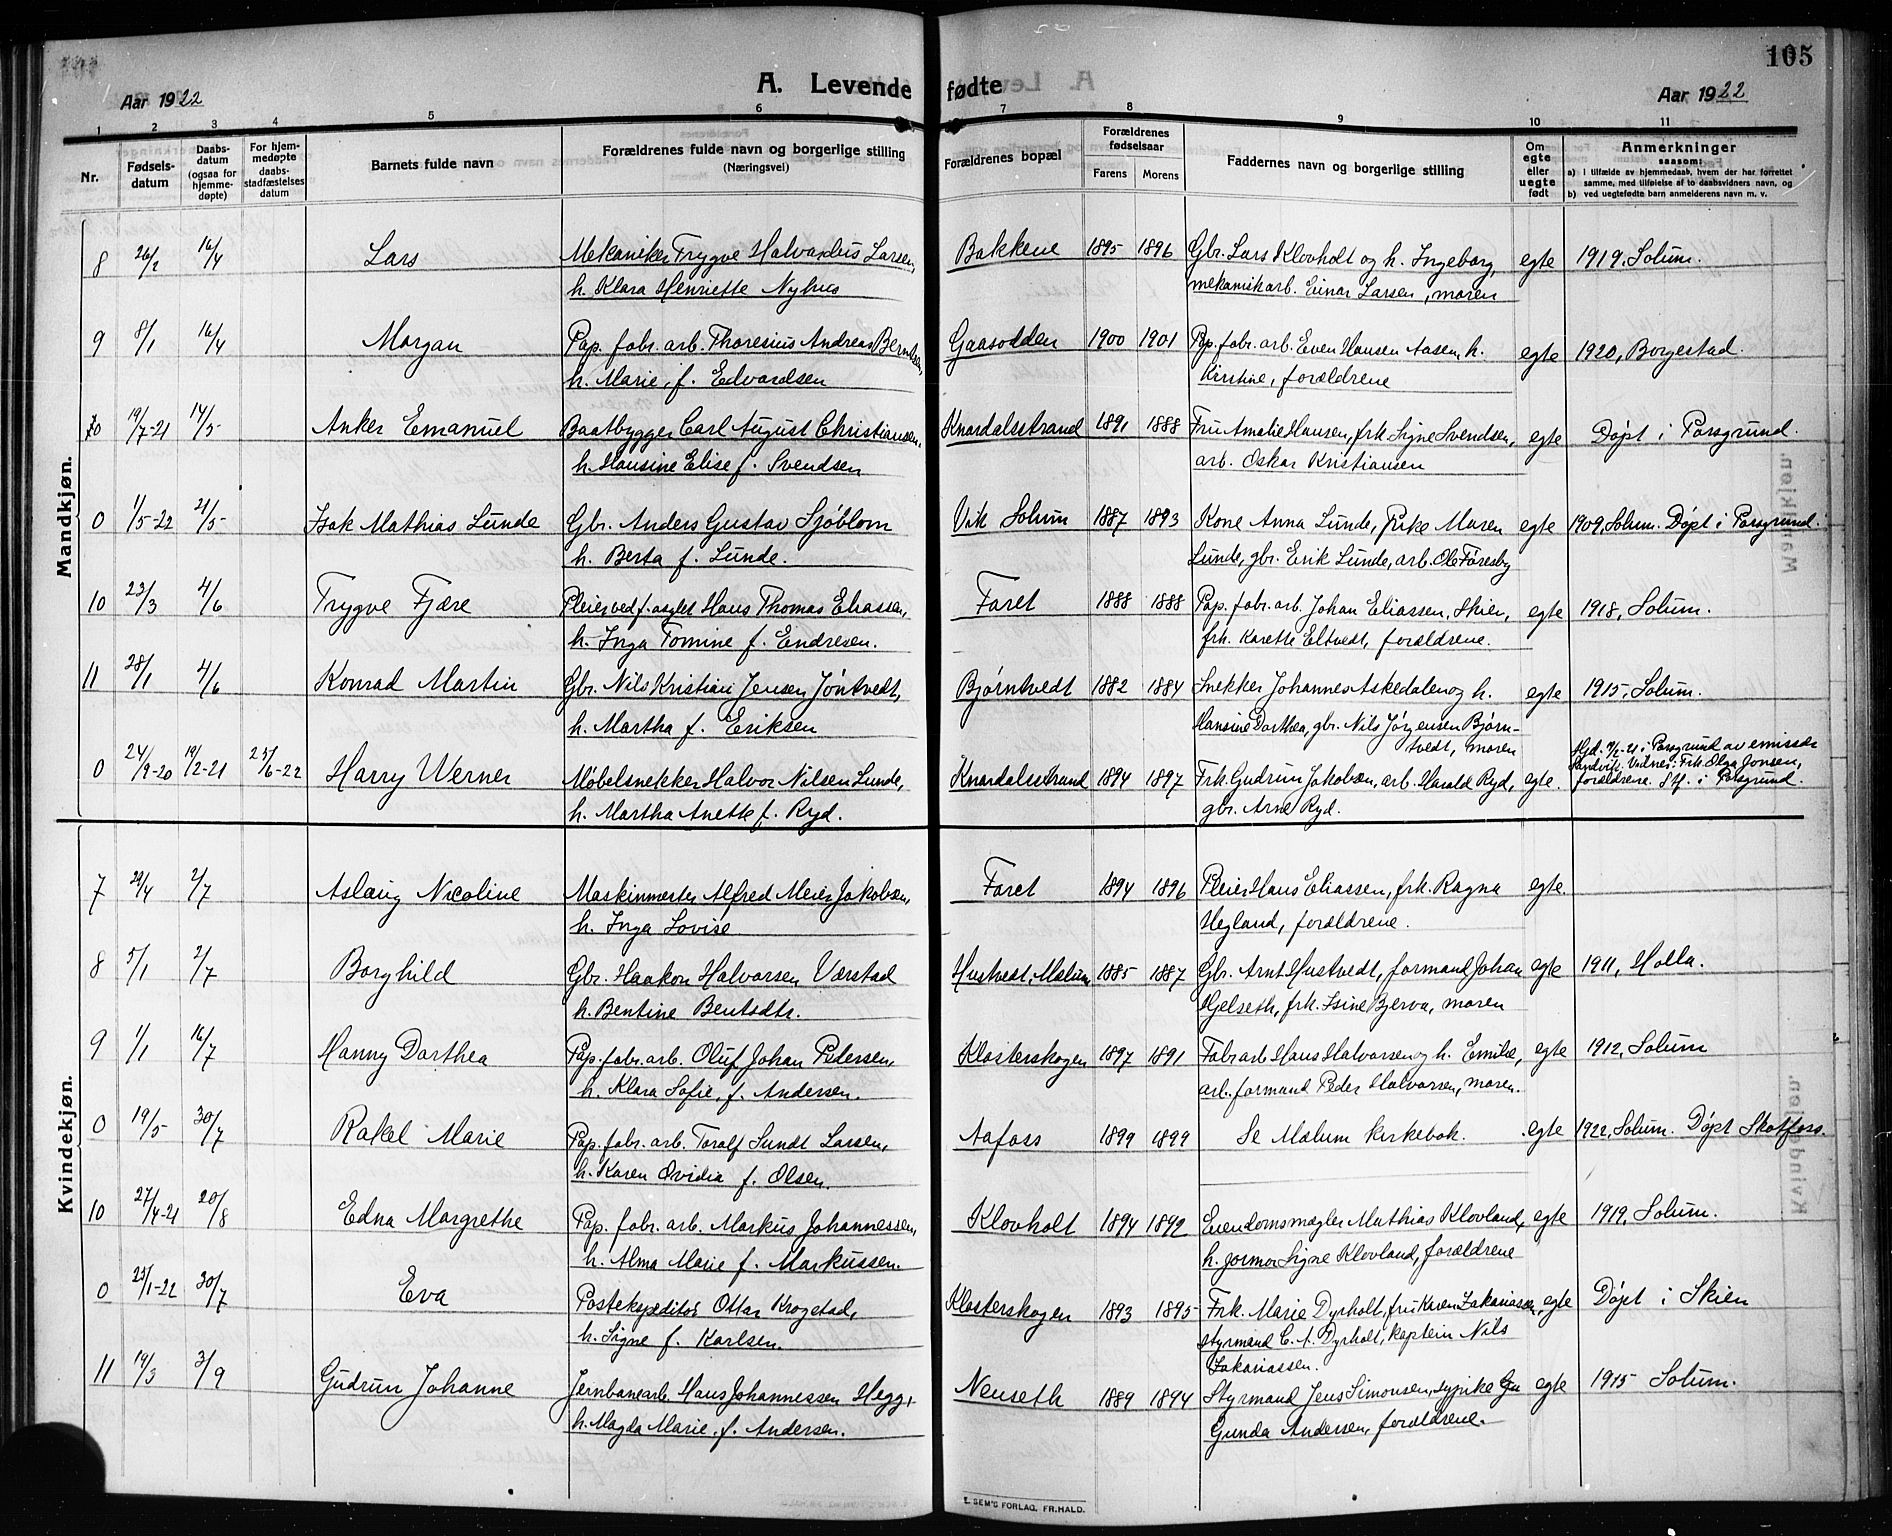 105
A. Levende fødte
Aar 1922
Aar 1922
1 2 3 4 5 6 7 8 9 10 11
Nr.
Fødsels-datum
Daabs-datum (ogsaa for hjemme-døpte)
For hjem-medøpte daabs-stadfæstelses datum
Barnets fulde navn
Forældrenes fulde navn og borgerlige stilling (Næringsvei)
Forældrenes bopæl
Forældrenes fødselsaar
Farens Morens
Faddernes navn og borgerlige stilling
Om egte eller uegte født
Anmerkninger
saasom:
a) i tilfælde av hjemmedaab, hvem der har forrettet samme, med tilføielse af to daabsvidners navn, og
b) ved uegtefødte barn anmelderens navn m. v.
Mandkjøn.
8 26/2 16/4 Lars Mekaniker Trygve Halvardus Larsen, Bakkene 1895 1896 Gbr. Lars Klovholt og h. Ingeborg, egte 1919, Solum.
h. Klara Henriette Nyhus mekanikarb. Einar Larsen, moren
9 8/1 16/4 Morgan Pap. fabr. arb. Thoresius Andreas Berntsen, Gaasodden 1900 1901 Pap. fabr. arb. Even Hansen Aasen, h. egte 1920, Borgestad.
h. Marie, f. Edvardsen Kirstine, forældrene
0 19/7-21 14/5 Anker Emanuel Baatbygger Carl August Christiansen, Knardalsstrand 1891 1888 Fru Amalie Hansen, frk. Signe Svendsen, egte Døpt i Porsgrund.
h. Hansine Elise f. Svendsen arb. Oskar Kristiansen
0 1/5-22 21/5 Isak Mathias Lunde Gbr. Anders Gustav Sjöblom Vik Solum 1887 1893 Kone Anna Lunde, Pike Maren egte 1909, Solum. Døpt i Porsgrund.
h. Berta f. Lunde. Lunde, gbr. Erik Lunde, arb. Ole Føresby
10 23/3 4/6 Trygve Fjære Pleier ved f. asylet Hans Thomas Eliassen, Faret 1888 1888 Pap. fabr. arb. Johan Eliassen, Skien, egte 1918, Solum.
h. Inga Tomine f. Endresen. frk. Karette Eltvedt, forældrene.
11 28/1 4/6 Konrad Martin Gbr. Nils Kristian Jensen Jøntvedt, Bjørntvedt 1882 1884 Snekker Johannes Askedalen og h. egte 1915, Solum.
h. Martha f. Eriksen Hansine Dorthea, gbr. Nils Jørgensen Bjørn-
tvedt, moren
0 24/9-20 19/2-21 25/6-22 Harry Werner Møbelsnekker Halvor Nilsen Lunde, Knardalsstrand 1894 1897 Frk. Gudrun Jakobsen, arb. Harald Ryd, egte. Hjd. 19/2-21 i Porsgrund av emissær
h. Martha Anette f. Ryd. gbr. Arne Ryd. Sandvik. Vidner: Frk. Olga Jonsen,
forældrene. Stf. i Porsgrund.
Kvindekjøn.
7 29/4 2/7 Aslaug Nicoline Maskinmester Alfred Meier Jakobsen, Faret 1894 1896 Pleier Hans Eliassen, frk. Ragna egte
h. Inga Lovise Hegland, forældrene.
8 5/1 2/7 Borghild Gbr. Haakon Halvorsen Værstad Hustvedt, Mælum 1885 1887 Gbr. Arnt Hustvedt, formand Johan egte 1911, Holla.
h. Bentine Bentsdtr. Hjelseth, frk. Isine Bjerva, moren
9 1/1 16/7 Hanny Dorthea Pap. fabr. arb. Oluf Johan Pedersen, Klosterskogen 1897 1891 Fabr. arb Hans Halvorsen og h. Emilie, egte 1912, Solum
h. Klara Sofie, f. Andersen. arb. formand Peder Halvorsen, moren.
0 19/5 30/7 Rakel Marie Pap. fabr. arb. Toralf Sundt Larsen, Aafoss 1899 1899 Se Mælum kirkebok. egte 1922, Solum. Døpt Skotfoss.
h. Karen Ovidia f. Olsen.
10 27/4-21 20/8 Edna Margrethe Pap. fabr. arb. Markus Johannessen, Klovholt 1894 1892 Eiendomsmægler Mathias Klovland, egte 1919, Solum.
h. Alma Marie f. Markussen. h. jormor Signe Klovland, forældrene
0 25/1-22 30/7 Eva Postekspeditør Ottar Krogstad, Klosterskogen 1893 1895 Frk. Marie Dyrholt, fru Karen Zakariassen, egte Døpt i Skien
h. Signe f. Karlsen. styrmand C. A. Dyrholt, kaptein Nils
Zakariassen.
11 19/3 3/9 Gudrun Johanne Jernbanearb. Hans Johannessen Hegg, Nenseth 1889 1894 Styrmand Jens Simonsen, sypike egte 1915 Solum.
h. Magda Marie, f. Andersen. Gunda Andersen, forældrene.
E. SEM'S FORLAG, FR.HALD.